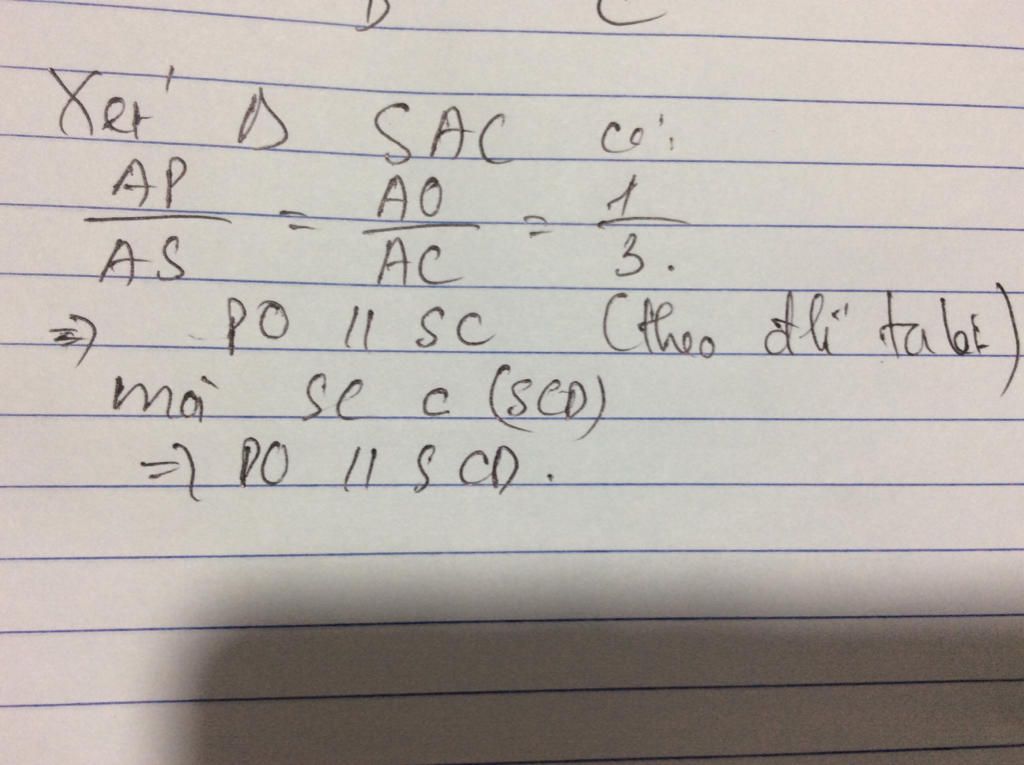 D C
Xét Δ SAC có:
AP/AS = AO/AC = 1/3.
=> PO // SC (theo đlí talet)
mà SC ⊂ (SCD)
=> PO // SCD.